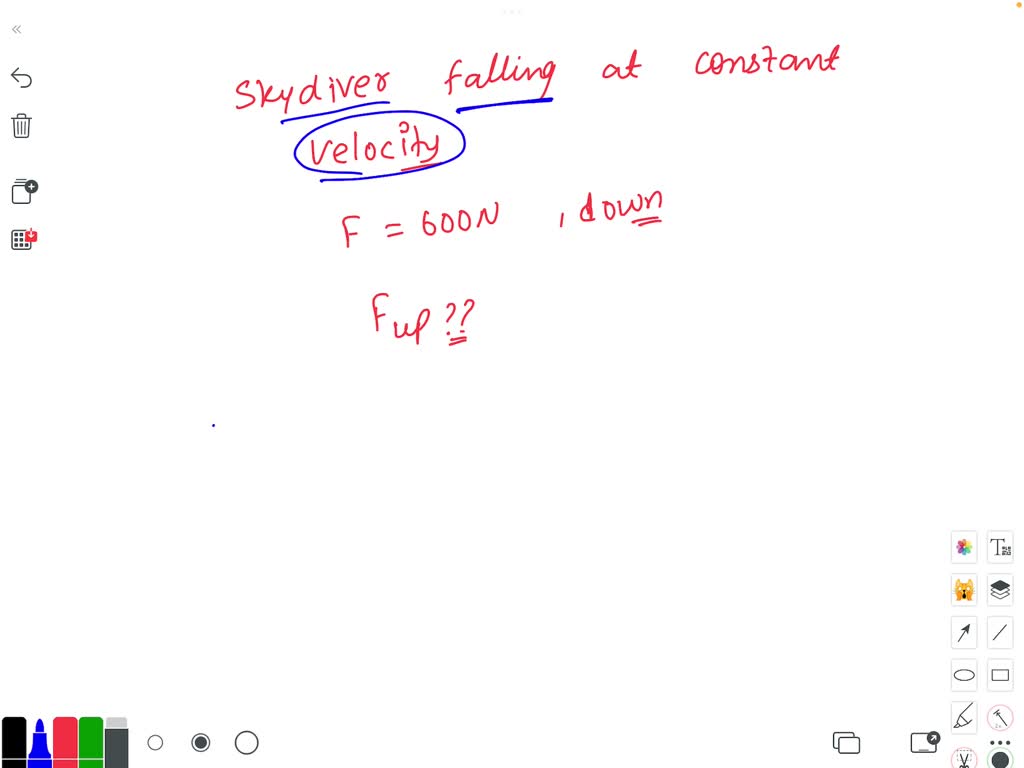 Skydiver falling at constant
velocity
F = 600N , down
Fup ??